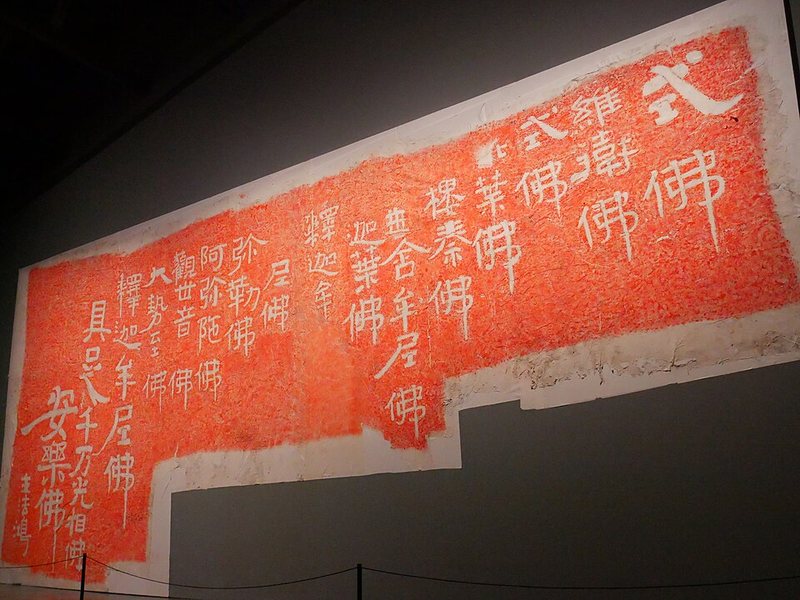 式佛
維衛佛
式佛
葉佛
樓秦佛
含牟尼佛
迦葉佛
釋迦牟
尼佛
弥勒佛
阿弥陁佛
觀世音佛
大勢至佛
釋迦牟尼佛
具足千万光相佛
安樂佛